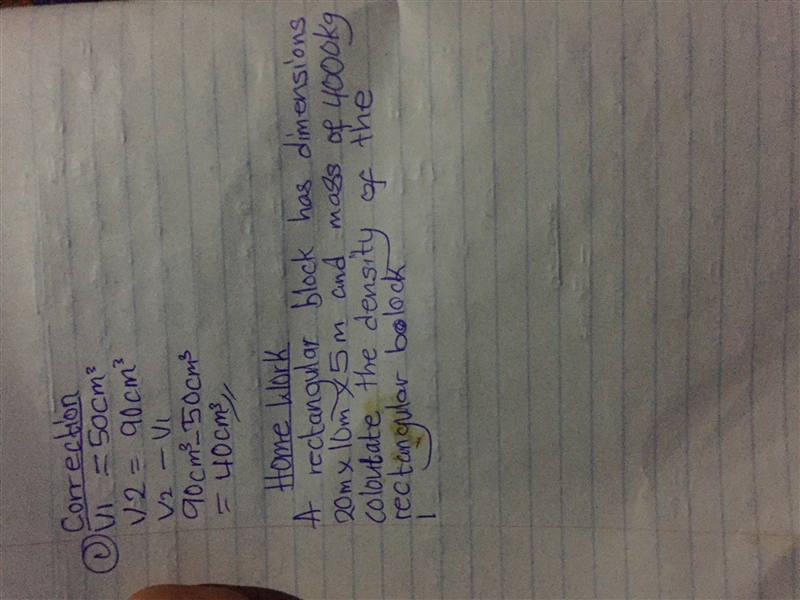 Correction
① V1 = 50cm³
V2 = 90cm³
V2 - V1
90cm³-50cm³
= 40cm³
Home Work
A rectangular block has dimensions
20m x 10m x 5m and mass of 4000kg
calculate the density of the
rectangular bolock